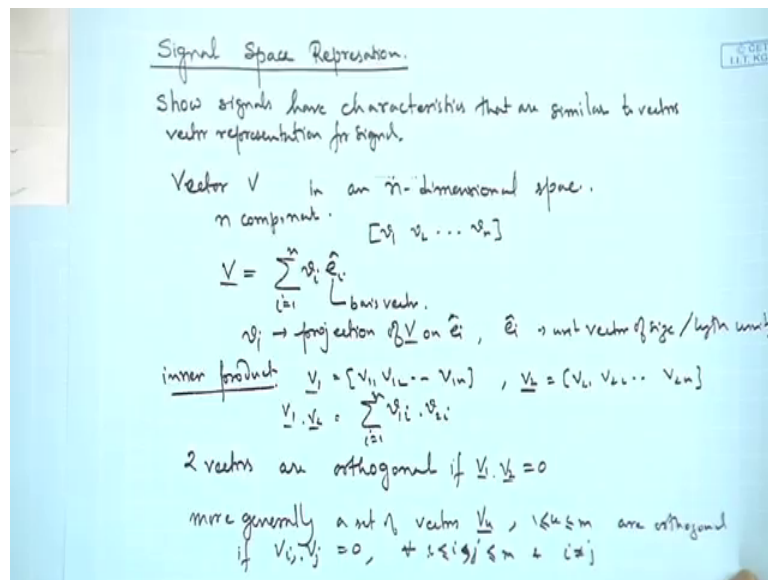 Signal Space Represation.
© CET
I.I.T. KG
Show signals have characteristics that are similar to vectors
vector representation for signal.
Vector V in an n-dimensional space.
n component. [v₁ v₂ ... vₙ]
V = Σᵢ₌₁ⁿ vᵢ êᵢ
basis vector.
vᵢ → projection of V on êᵢ, êᵢ → unit vector of size / length unity
inner product V₁ = [V₁₁ V₁₂ -- V₁ₙ], V₂ = [V₂₁ V₂₂ .. V₂ₙ]
V₁ . V₂ = Σᵢ₌₁ⁿ v₁ᵢ . v₂ᵢ
2 vectors are orthogonal if V₁ . V₂ = 0
more generally a set of vectors Vₖ, 1≤k≤m are orthogonal
if Vᵢ . Vⱼ = 0, ∀ 1≤i,j≤m & i≠j